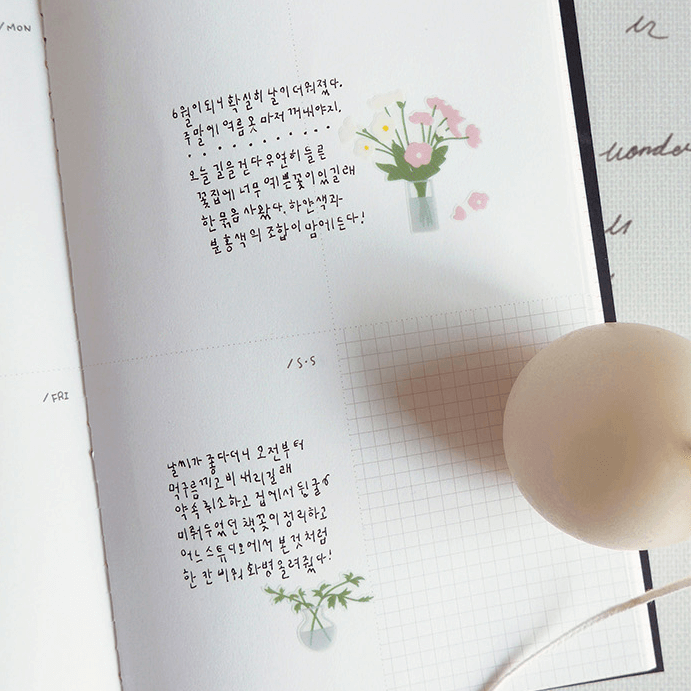 /MON
6월이 되니 확실히 날이 더워졌다.
주말에 여름옷 마저 꺼내야지.
오늘 길을 걷다 우연히 들른
꽃집에 너무 예쁜 꽃이 있길래
한 묶음 사왔다. 하얀색과
분홍색의 조합이 맘에 든다!
/S·S
/FRI
날씨가 좋다더니 오전부터
먹구름 끼고 비 내리길래
약속 취소하고 집에서 뒹굴
미뤄두었던 책꽂이 정리하고
어느 스튜디오에서 본 것처럼
한 칸 비워 화병 올려줬다!
wonde